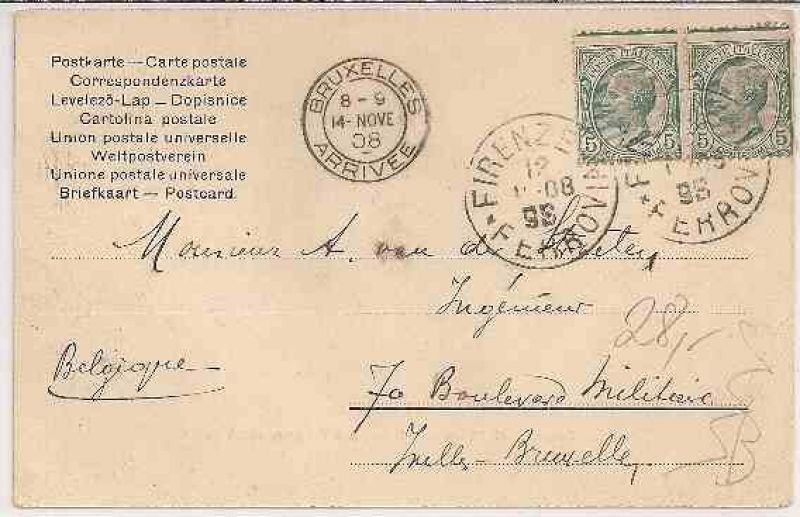 Postkarte — Carte postale
Correspondenzkarte
Levelező-Lap — Dopisnice
Cartolina postale
Union postale universelle
Weltpostverein
Unione postale universale
Briefkaart — Postcard.
BRUXELLES
8 - 9
14 - NOVE
08
ARRIVÉE
5 5
5 5
FIRENZE
12
08
9S
*FERROVIA
9S
*FERROVIA
Monsieur A. van de
Ingénieur
28,-
Belgique
70 Boulevard Militaire
Ixelles-Bruxelles